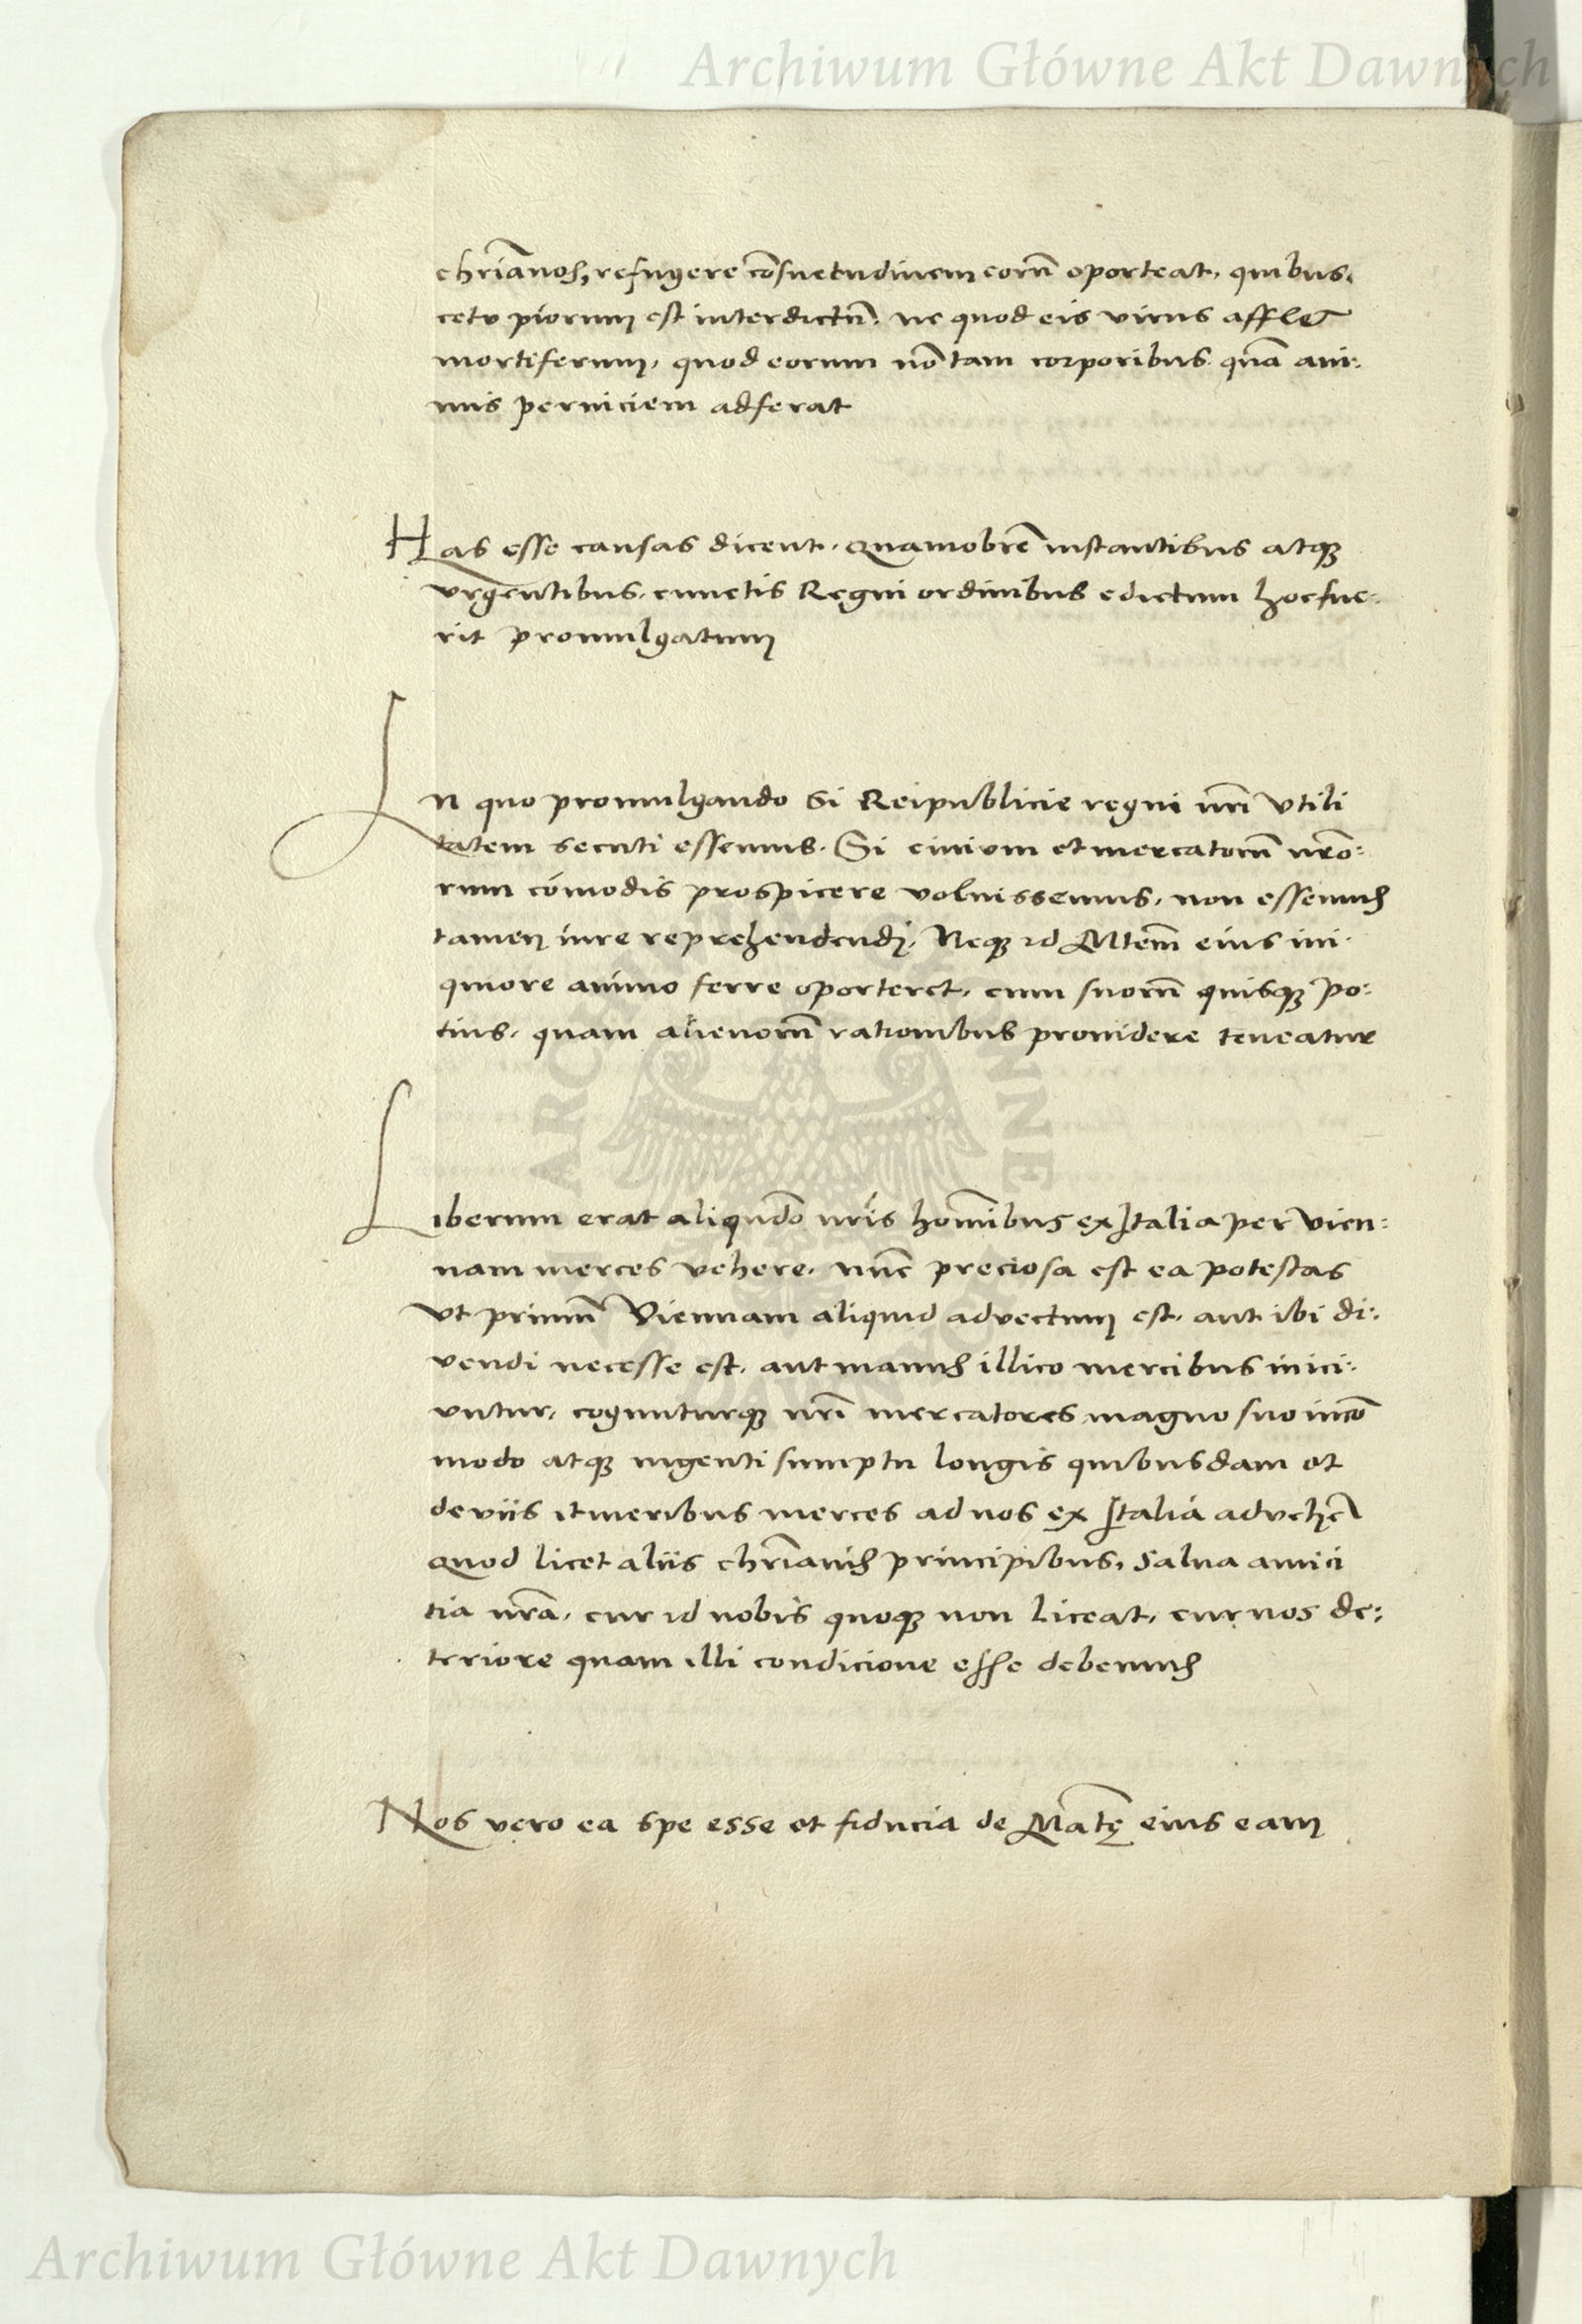 Archiwum Główne Akt Dawnych
chr̃ianos, refugere cõsuetudinem eorũ oporteat, quibus
cetu piorum est interdictũ, ne quod eis virus afflet
mortiferum, quod eorum nõ tam corporibus quã ani:
mis perniciem adferat
Has esse causas dicent, quamobrẽ instantibus atq₃
vrgentibus cunctis Regni ordinibus edictum hoc fue:
rit promulgatum
In quo promulgando si Reipublicie regni nr̃i vtili
tatem secuti essemus. Si ciuium et mercatorũ nr̃o:
rum cõmodis prospicere voluissemus, non essemus
tamen iure reprehendendi. Neq₃ id Mtem̃ eius ini:
quiore animo ferre oporteret, cum suorũ quisq₃ po:
tius, quam alienorũ rationibus prouidere teneatur
Liberum erat aliqun̄do nr̃is hom̃ibus ex Italia per Vien:
nam merces vehere, nũc preciosa est ea potestas
Vt primũ Viennam aliquid advectum est, aut ibi di:
vendi necesse est, aut manus illico mercibus inici:
untur, cogunturq₃ nr̃i mercatores magno suo incõ
modo atq₃ ingenti sumptu longis quibusdam et
deviis itineribus merces ad nos ex Italia advehẽ
quod licet aliis chr̃ianis principibus, salua amici
tia nr̃a, cur id nobis quoq₃ non liceat, cur nos de:
teriore quam illi condicione esse debemus
Nos vero ea spe esse et fiducia de Mãtę eius eam
ARCHIWUM GŁÓWNE
AKT DAWNYCH
Archiwum Główne Akt Dawnych